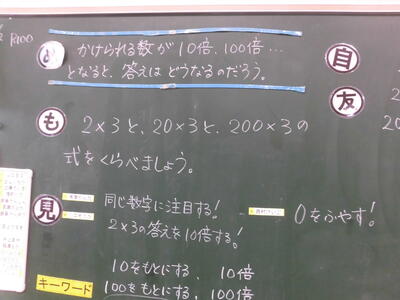 P.100
め
かけられる数が10倍、100倍…
となると、答えは どうなるのだろう。
自
友
も
2×3と、20×3と、200×3の
式をくらべましょう。
20
見
同じ数字に注目する!
2×3の答えを10倍する!
0をふやす!
キーワード
10をもとにする、 10倍
100をもとにする、 100倍